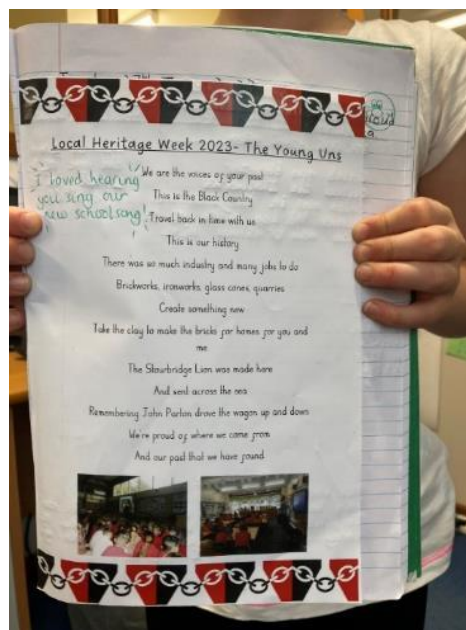 Local Heritage Week 2023- The Young Uns
I loved hearing
you sing our
new school song!
We are the voices of your past
This is the Black Country
Travel back in time with us
This is our history
There was so much industry and many jobs to do
Brickworks, ironworks, glass cones, quarries
Create something new
Take the clay to make the bricks for homes for you and
me
The Stourbridge Lion was made here
And sent across the sea
Remembering John Parkin drove the wagon up and down
We're proud of where we come from
And our past that we have found